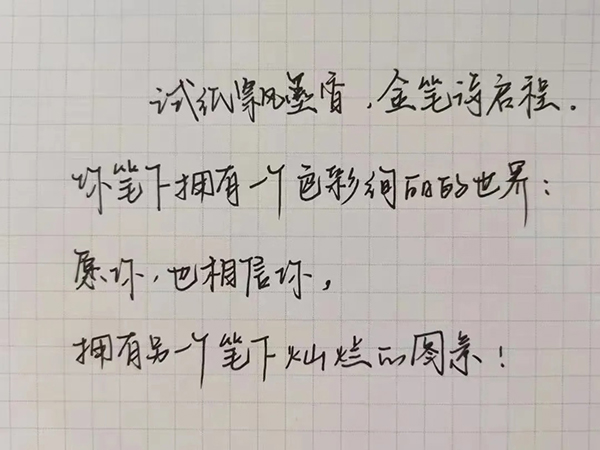 试纸飘墨香，金笔诗启程。
你笔下拥有一个色彩绚丽的世界：
愿你，也相信你，
拥有另一个笔下灿烂的图景！